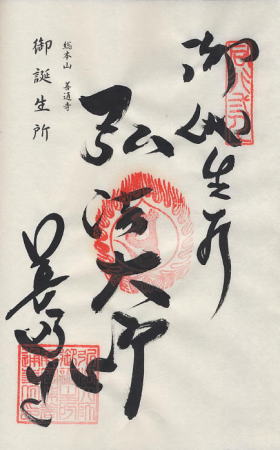 御誕生所
弘法大師
善通寺
総本山 善通寺
御誕生所